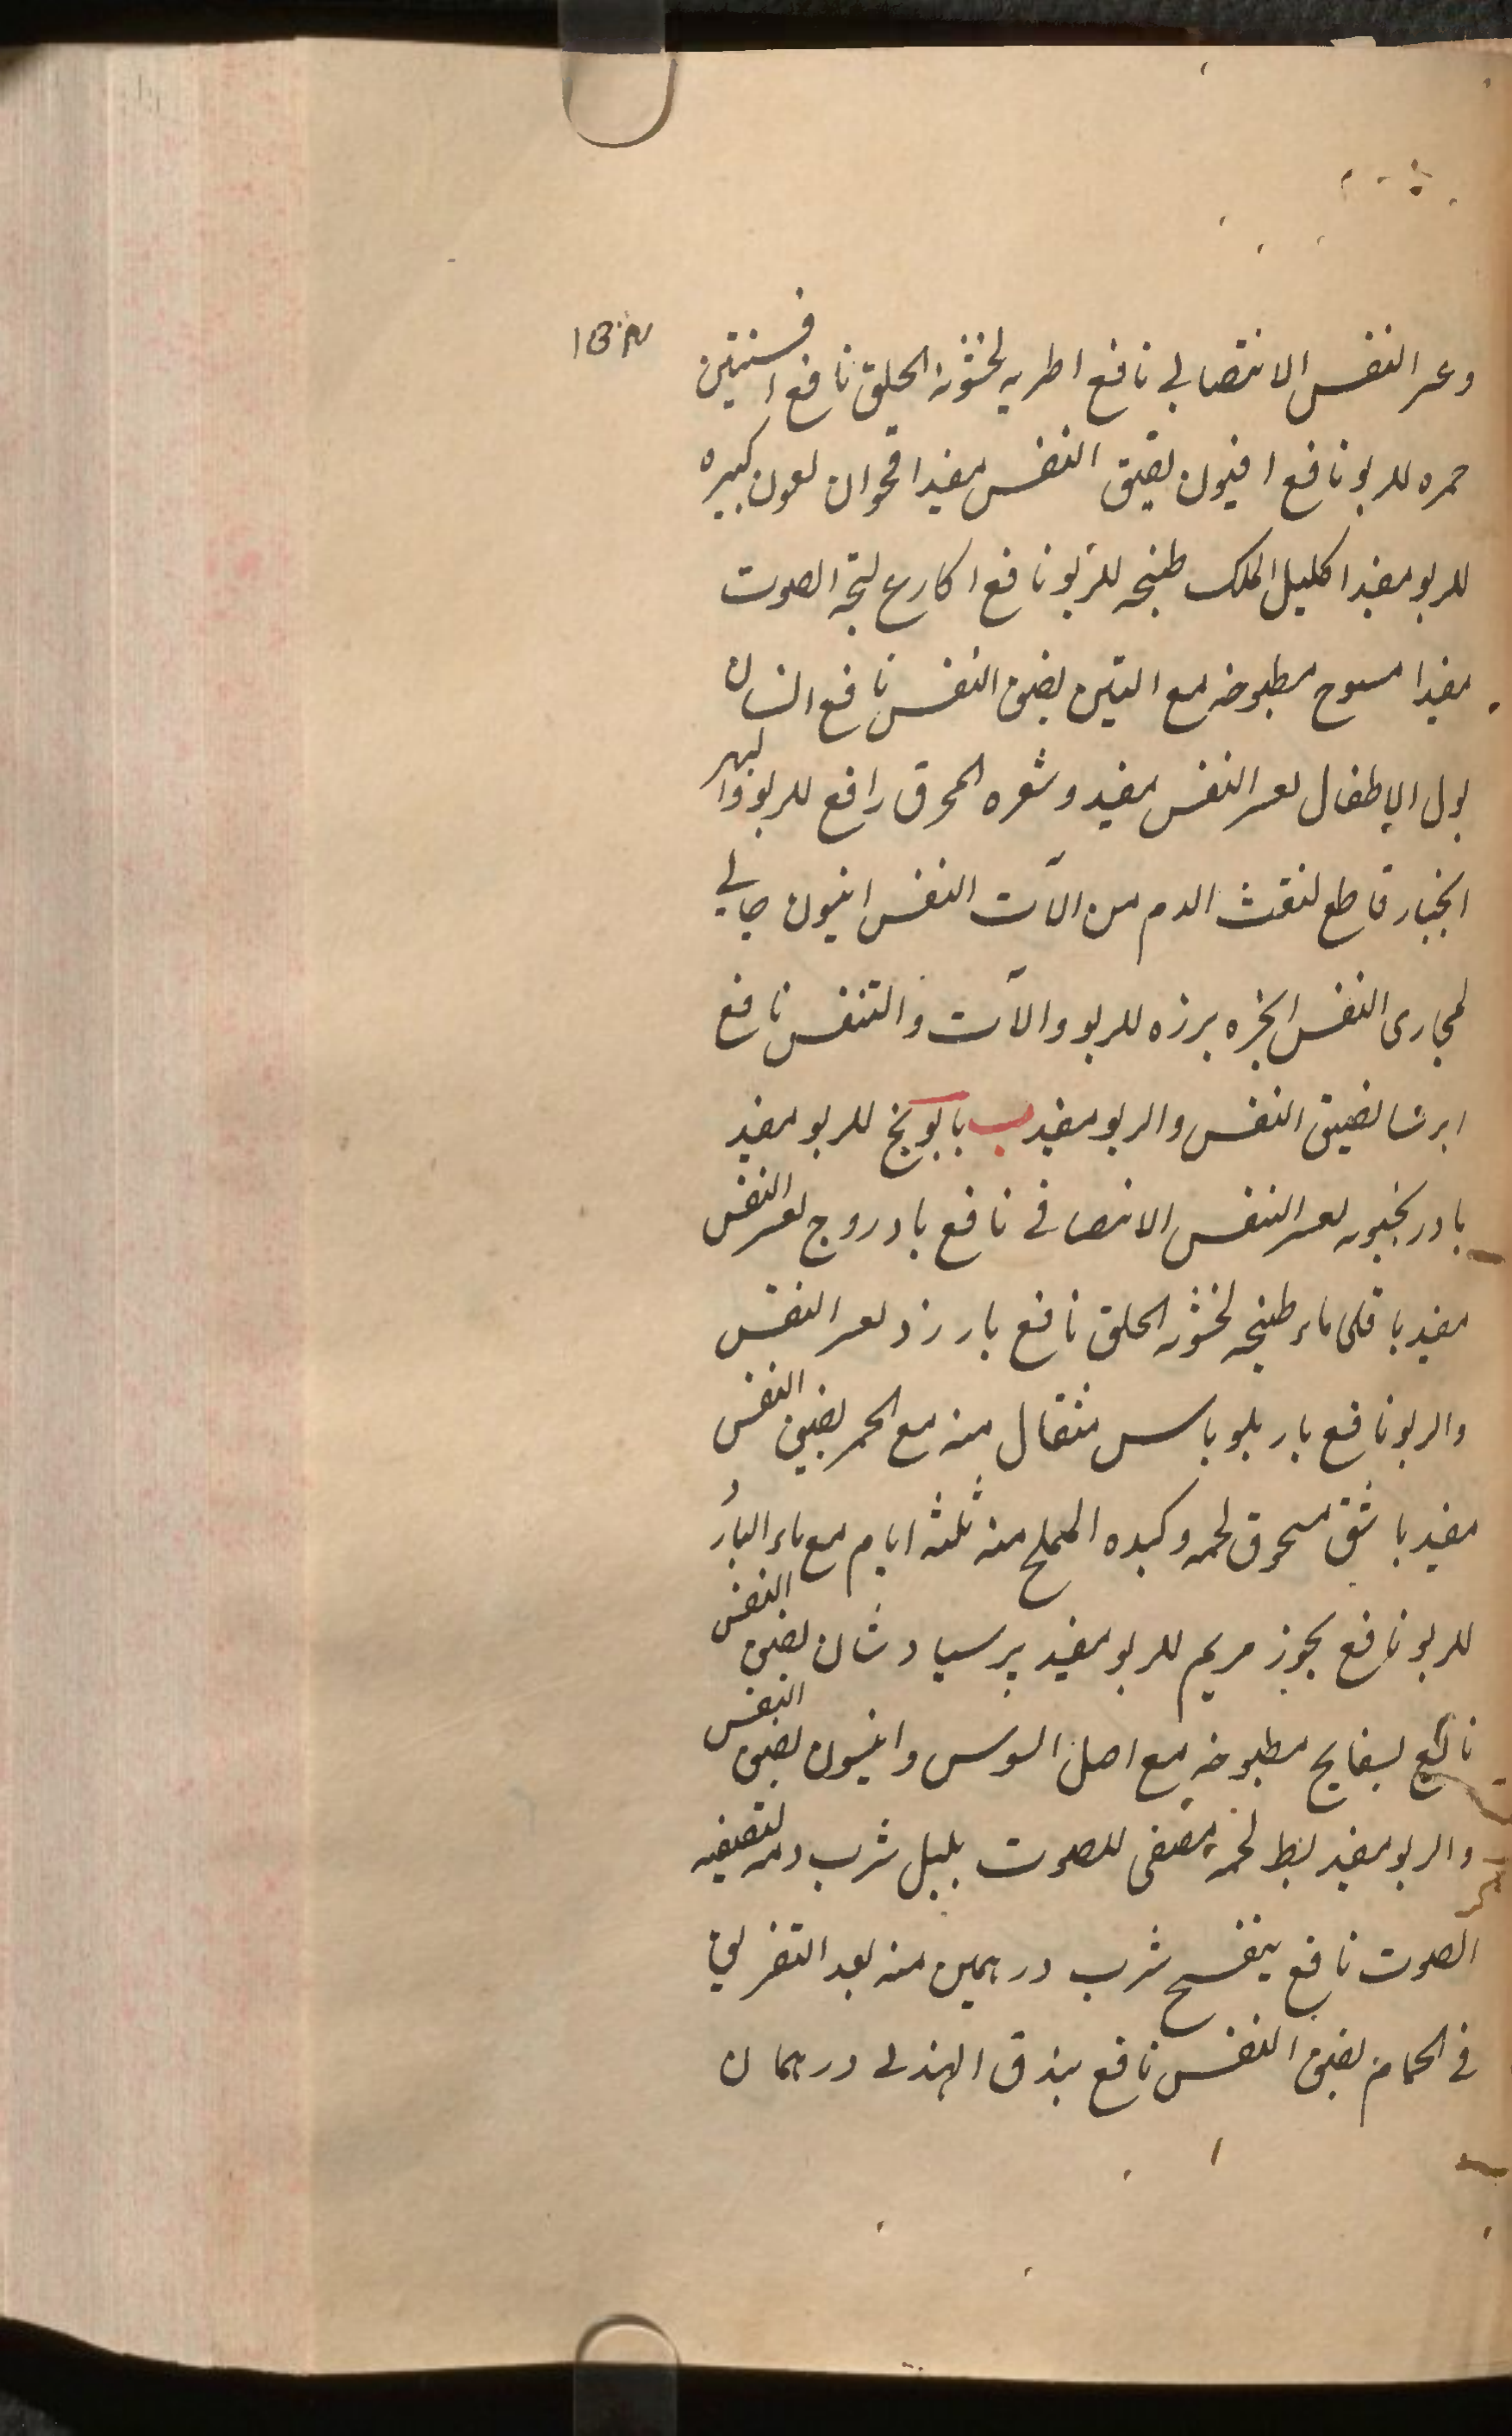 وعسر النفس الانتصابی نافع اطریه لخشونة الحلق نافع افسنتین
خمره للربو نافع افیون لضیق النفس مفید اقحوان لعوق کبیره
للربو مفید اکلیل الملک طبیخه للربو نافع اکارع لبحة الصوت
مفید امسوح مطبوخه مع التین لضیق النفس نافع انسان
بول الاطفال لعسر النفس مفید وشعره المحرق رافع للربو والبهر
انجبار قاطع لنفث الدم من الآت النفس انیسون جالی
لمجاری النفس انجره بزره للربو والآت والتنفس نافع
ایرسا لضیق النفس والربو مفید ب بابونج للربو مفید
بادرنجبویه لعسر النفس الانتصابی نافع بادروج لعسر النفس
مفید باقلی ماء طبیخه لخشونة الحلق نافع بارزد لعسر النفس
والربو نافع مثقال منه مع الخمر لضیق النفس
مفید باشق مسحوق لحمه وکبده المملح منه ثلثه ایام مع ماء البارد
للربو نافع بخور مریم للربو مفید برسیاوشان لضیق النفس
نافع بسفایج مطبوخه مع اصل السوس وانیسون لضیق النفس
والربو مفید بط لحمه مصفی للصوت بلبل شرب دمه لتصفیه
الصوت نافع بنفسج شرب درهمین منه بعد
فی الحمام لضیق النفس نافع بندق الهندی درهمان